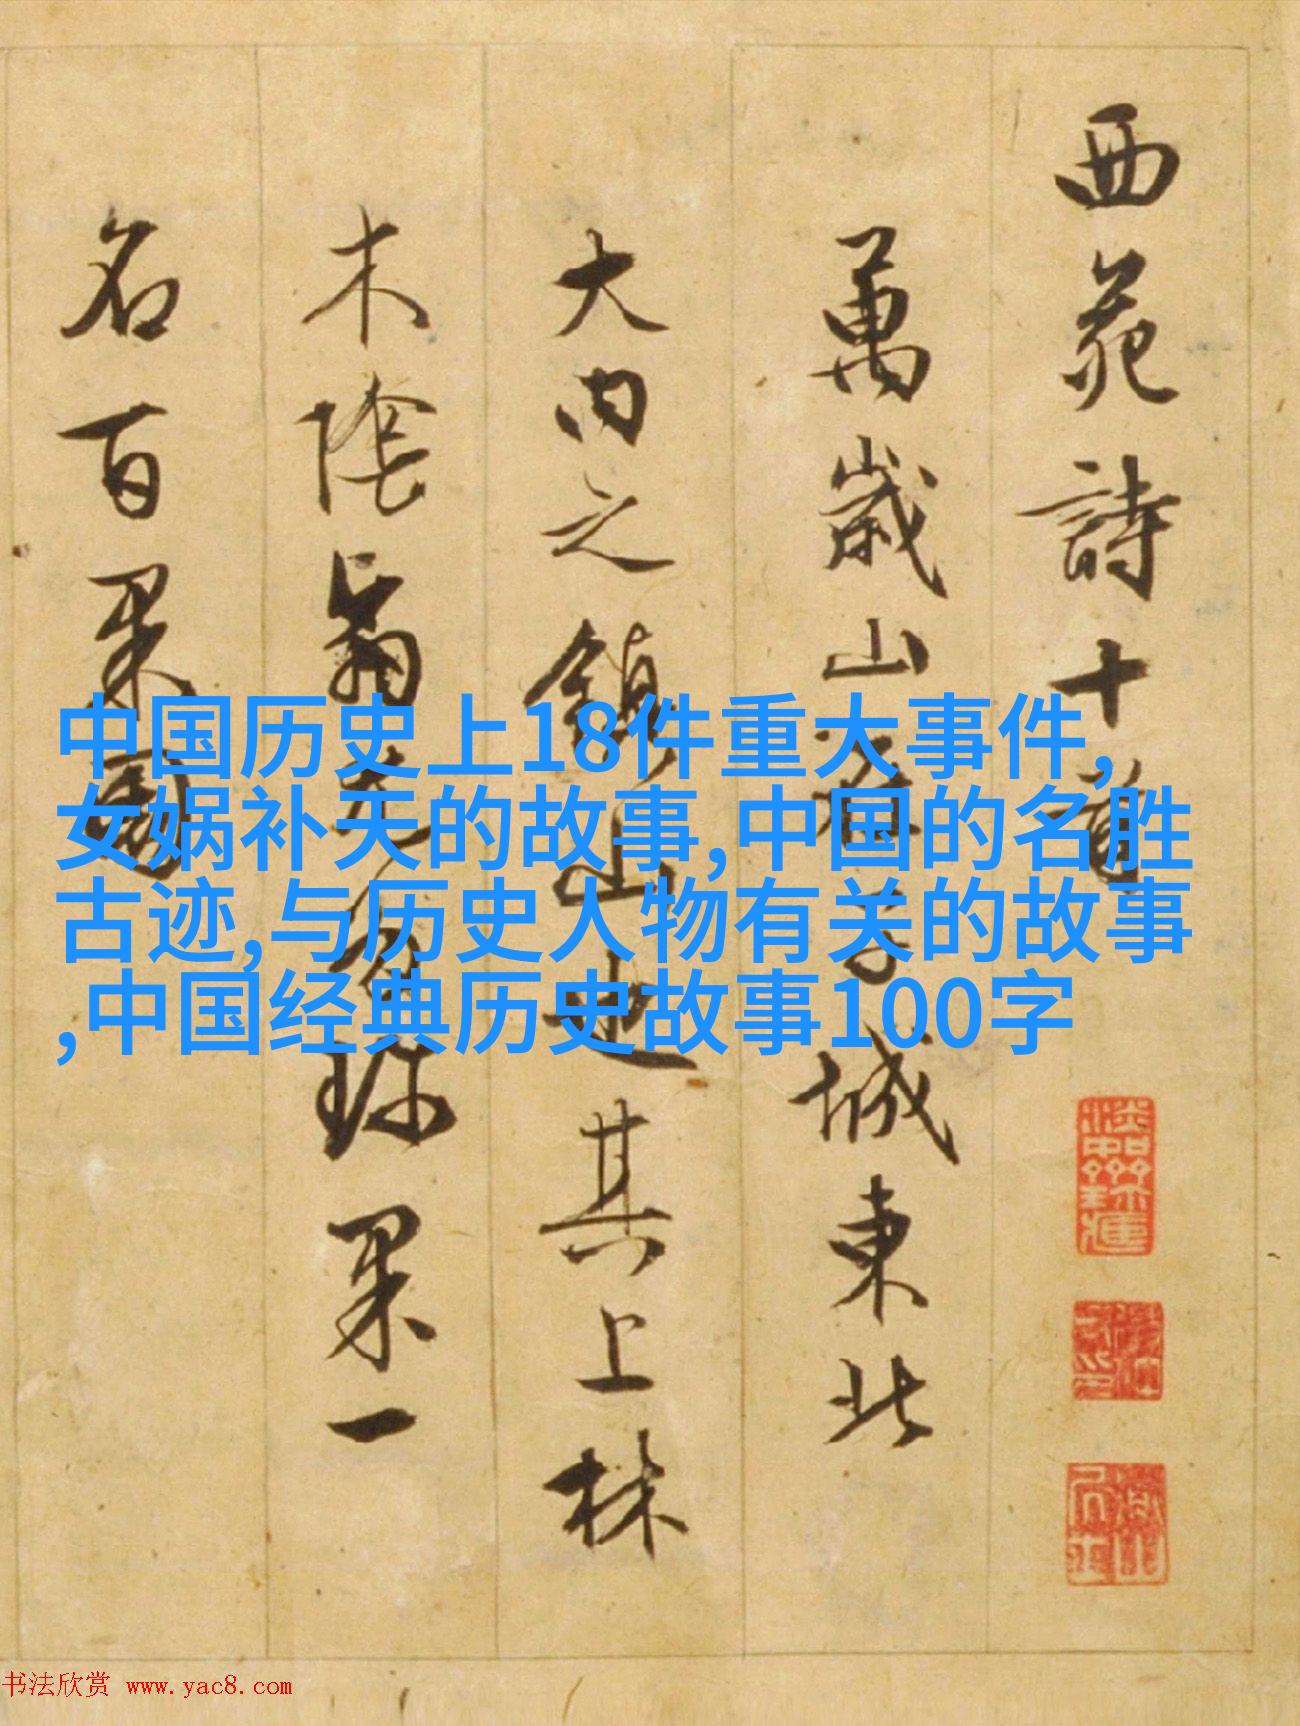 西苑詩十首
萬歲山在子城東北
大内之鎮山也其上林
木陰翳尤多珍果一
名百果園
中国历史上18件重大事件,
女娲补天的故事,中国的名胜
古迹,与历史人物有关的故事
,中国经典历史故事100字
书法欣赏 www.yac8.com